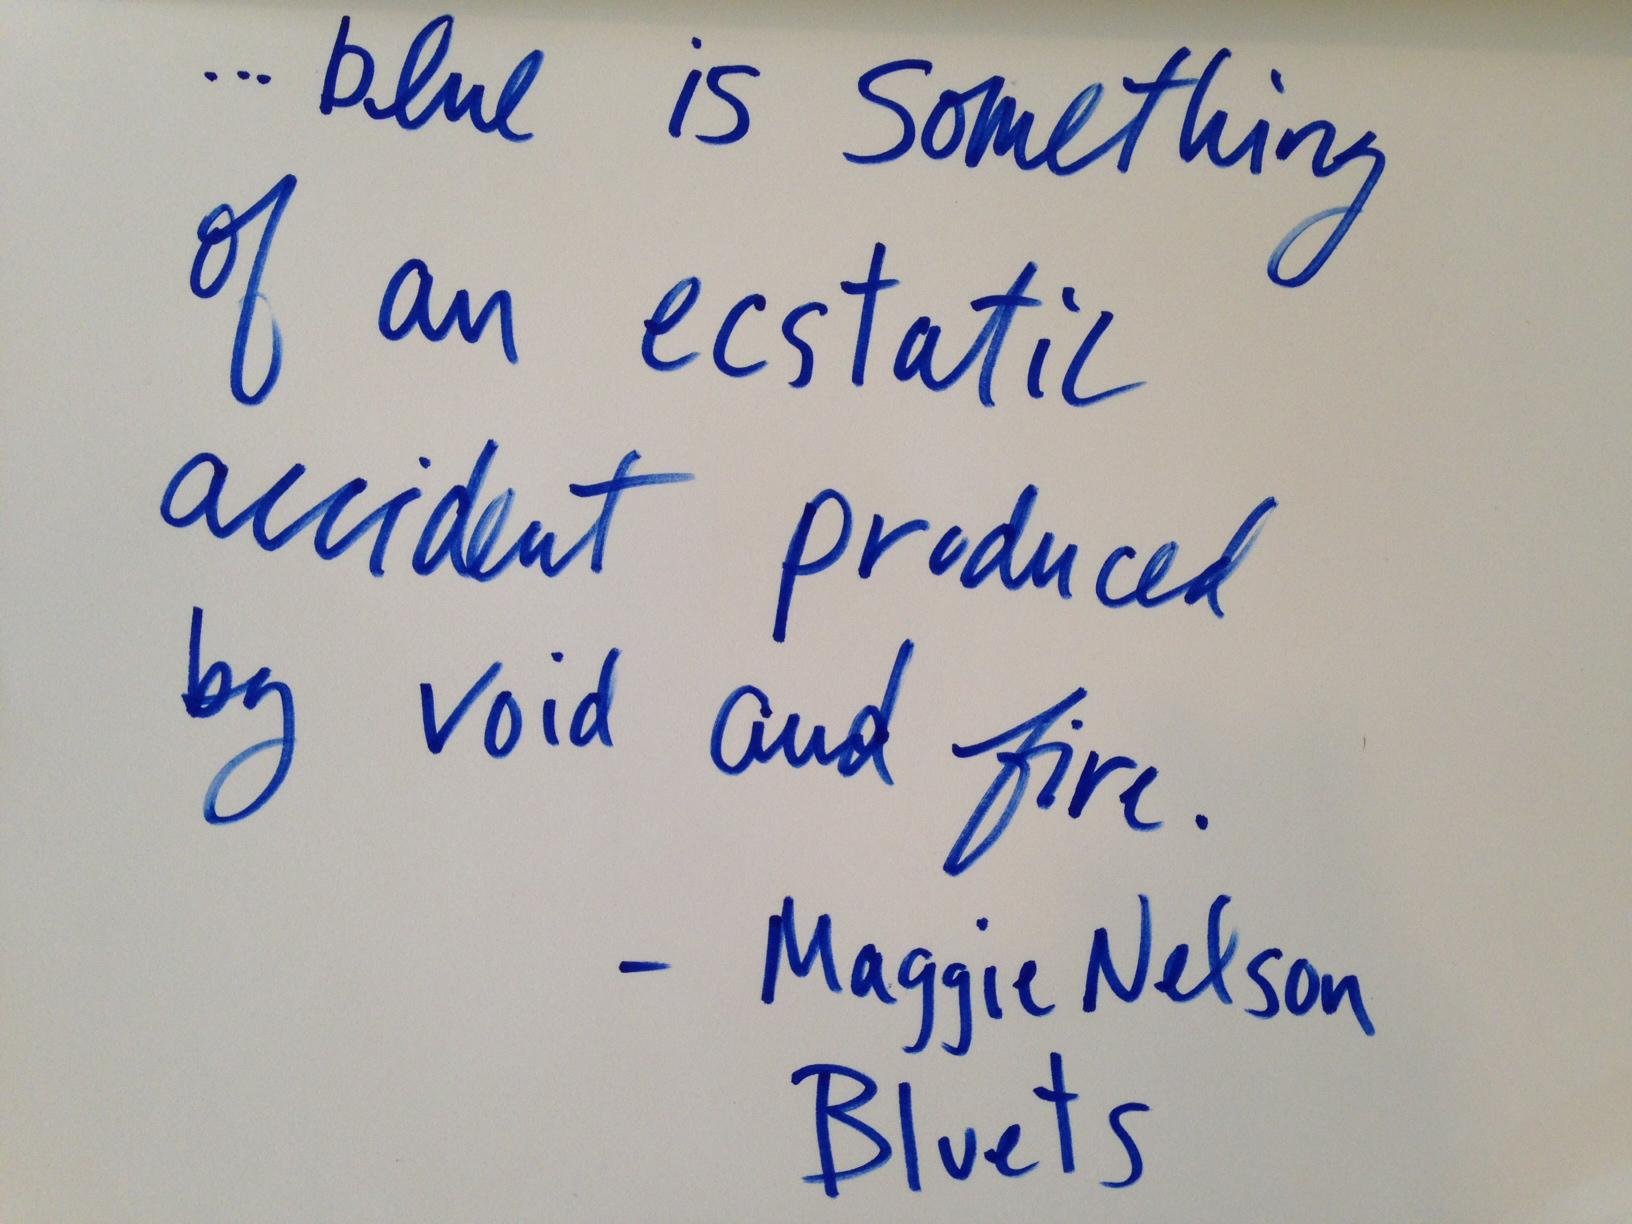 ... blue is something
of an ecstatic
accident produced
by void and fire.
- Maggie Nelson
Bluets